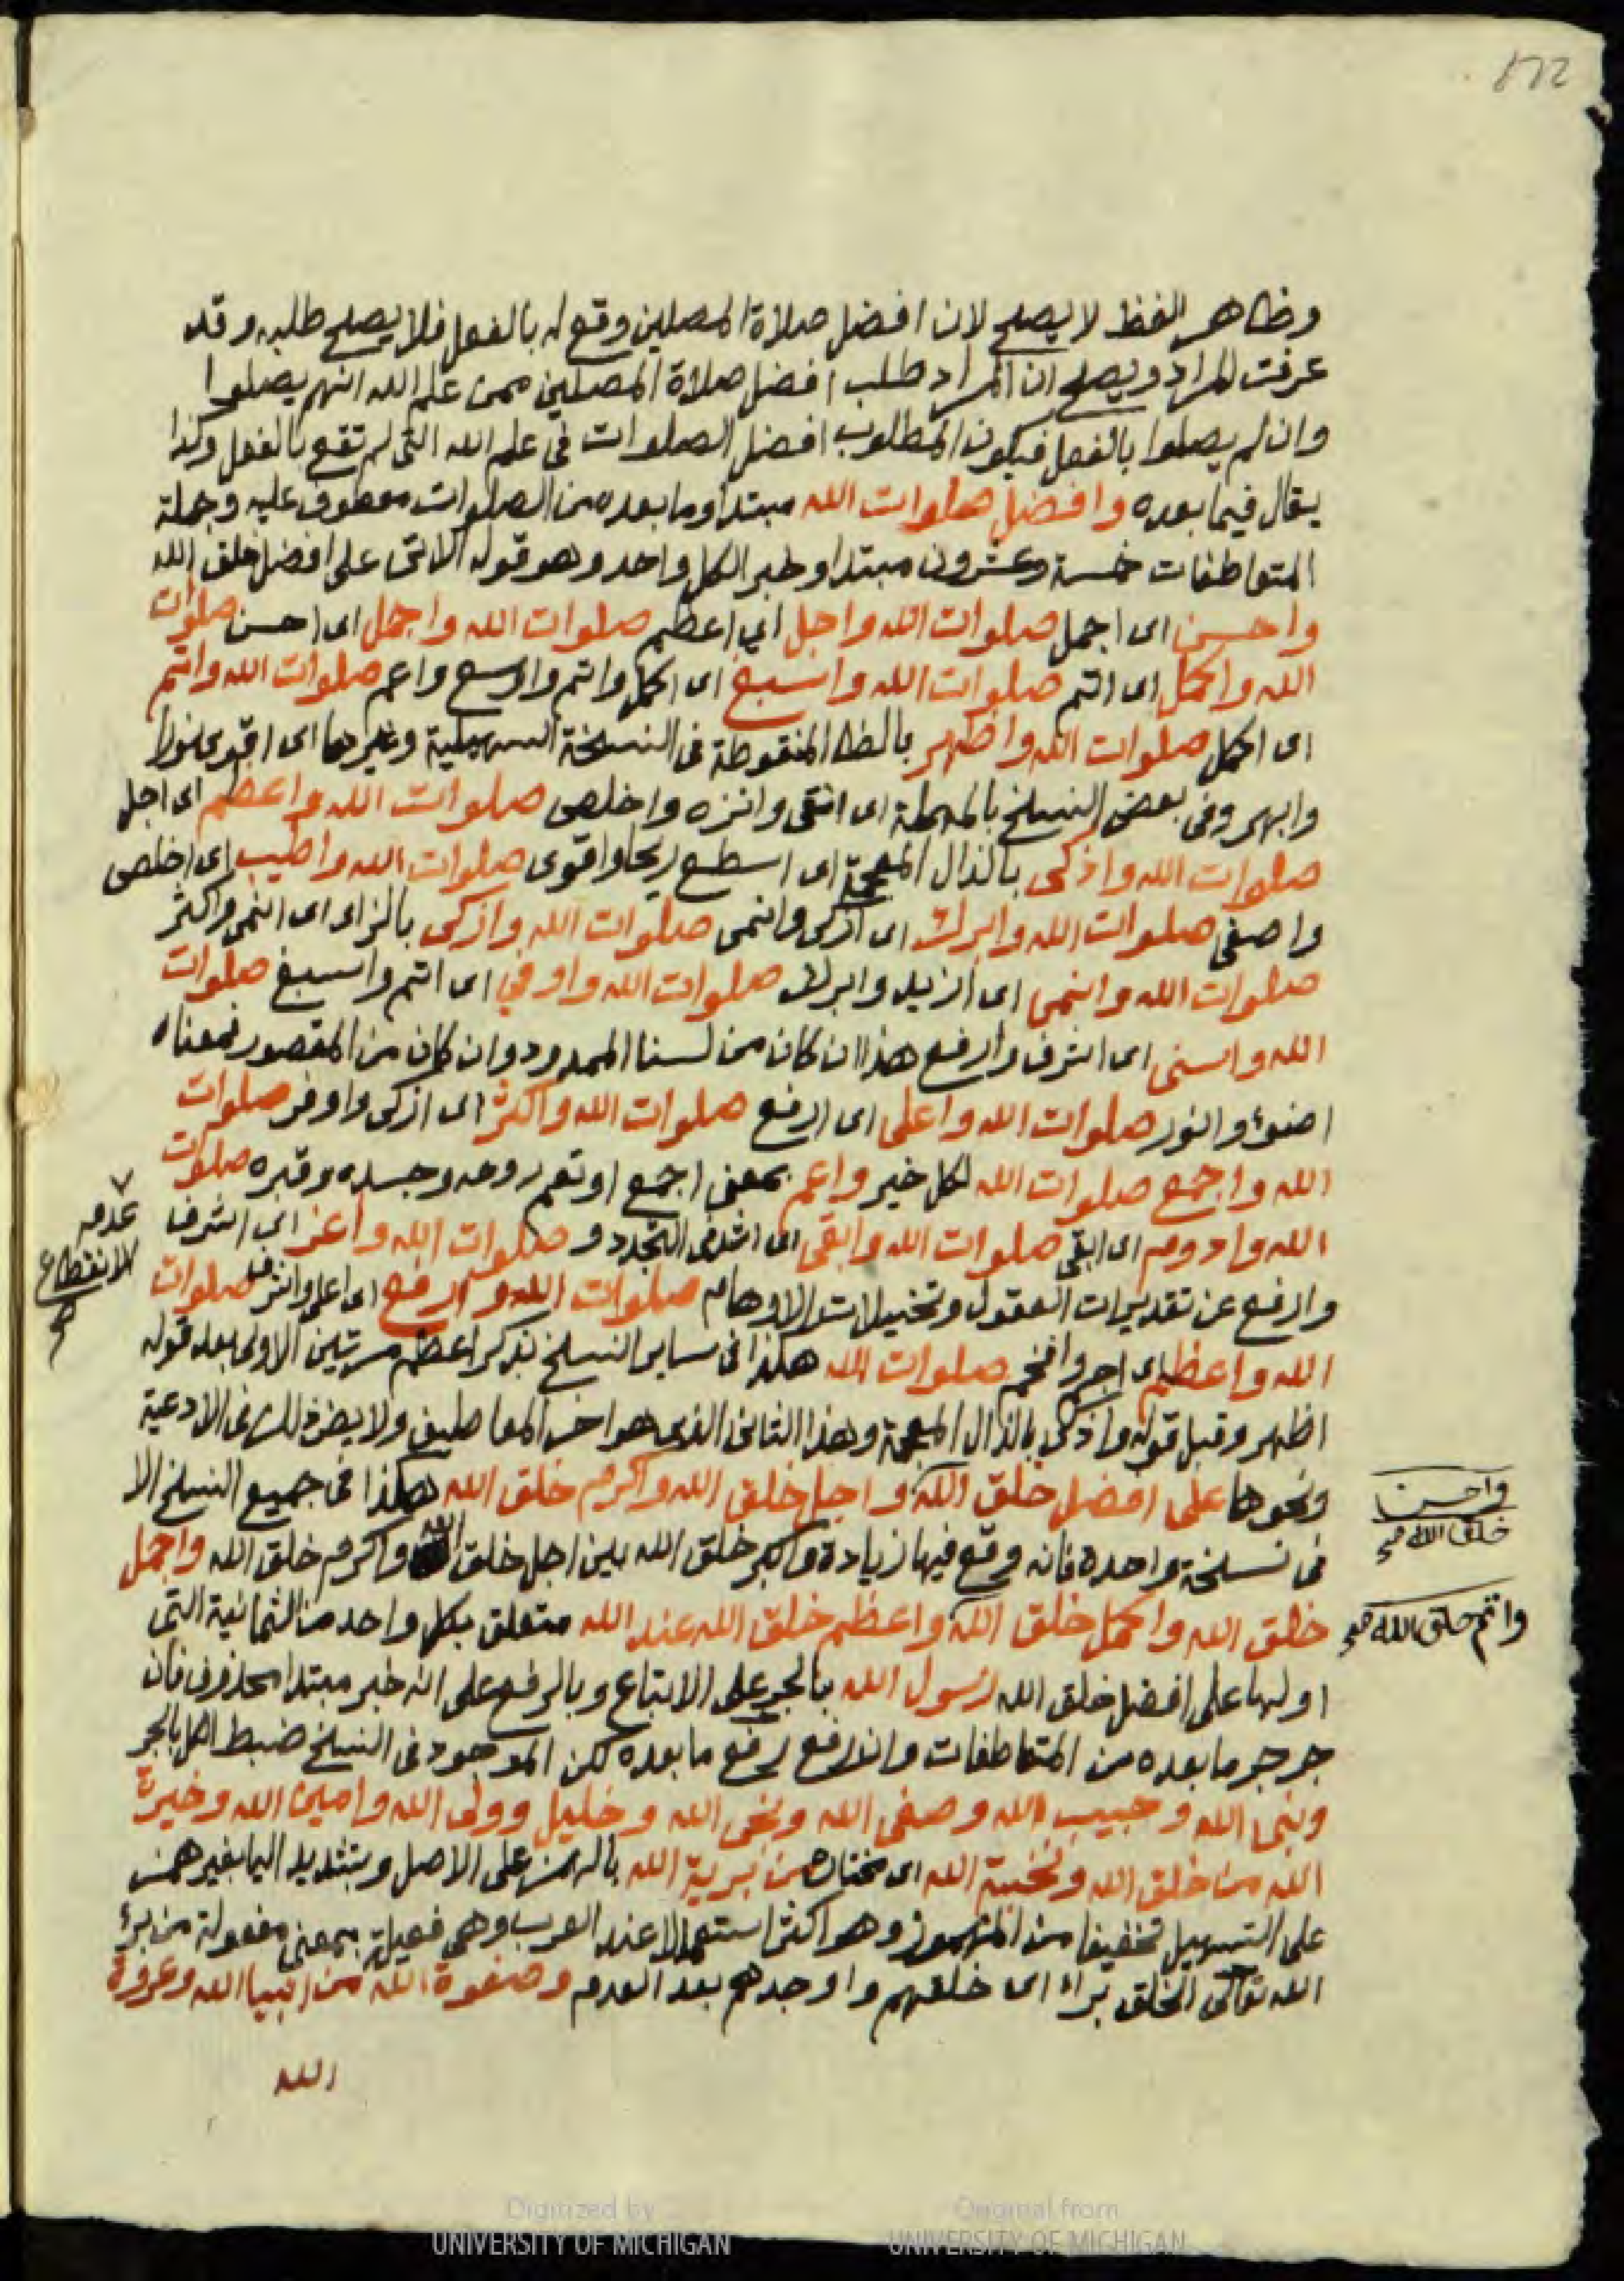 ١٧٢
وظاهر اللفظ لا يصلح لان افضل صلاة المصلين وقع له بالفعل فلا يصلح طلبه وقد
عرفت المراد ويصلح ان المراد طلب افضل صلاة المصلين ممن علم الله انهم يصلوا
وان لم يصلوا بالفعل فيكون المطلوب افضل الصلوات في علم الله التى لم تقع بالفعل وكذا
يقال فيما بعده وافضل صلوات الله مبتدا وما بعده من الصلوات معطوف عليه وجملة
المتعاطفات خمسة وعشرون مبتدا وخبر الكل واحد وهو قوله الاتى على افضل خلق الله
واحسن اى اجمل صلوات الله واجل اي اعظم صلوات الله واجمل اى احسن صلوات
الله واكمل اى اتم صلوات الله واسبغ اى اكمل واتم واوسع واعم صلوات الله واتم
اى اكمل صلوات الله واظهر بالظا المنقوطة فى النسخة السهيلية وغيرها اى اقوى ظهورا
وابهر وفى بعض النسخ بالمهملة اى انقى وانزه واخلص صلوات الله واعظم اى اجل
صلوات الله واذكى بالذال المعجمة اى اسطع ريحا واقوى صلوات الله واطيب اى اخلص
واصفى صلوات الله وابرك اى ازكى وانمى صلوات الله وازكى بالزاى اى انمى واكثر
صلوات الله وانمى اى ازيد وابرك صلوات الله واوفي اى اتم واسبغ صلوات
الله واسنى اى اشرف وارفع هذا ان كان من لسنا الممدود وان كان من المقصور فمعناه
اضوء وانور صلوات الله واعلى اى ارفع صلوات الله واكثر اى ازكى واوفر صلوات
الله واجمع صلوات الله لكل خير واعم بمعنى اجمع او تعم روحه وجسده وقبره صلوات
الله وادوم اى ابقى صلوات الله وابقى اى اشد فى التجدد و صلوات الله واعز اى اشرف
عدم
الانقطاع
صح
وارفع عن تقديرات العقول وتخيلات الاوهام صلوات الله وارفع اى اعلى واشرف صلوات
الله واعظم اى اجر وافخم صلوات الله هكذا فى ساير النسخ بذكر اعظم مرتين الاولى بعد قوله
اظهر وقبل قوله واذكى بالذال المعجمة وهذا الثانى الذى هو اخر المعاطيف ولا يضر ذلك فى الادعية
ونحوها على افضل خلق الله واجل خلق الله واكرم خلق الله هكذا فى جميع النسخ الا
واحسن
خلق الله صح
فى نسخة واحدة فانه وقع فيها زيادة واكبر خلق الله بين اجل خلق الله واكرم خلق الله واجمل
خلق الله واكمل خلق الله واعظم خلق الله عند الله متعلق بكل واحد من الثمانية التى
واتم خلق الله صح
اولها على افضل خلق الله رسول الله بالجر على الاتباع وبالرفع على انه خبر مبتدا محذوف فان
جر جر ما بعده من المتعاطفات وان رفع رفع ما بعده لكن الموجود فى النسخ ضبط الكل بالجر
ونبى الله وحبيب الله وصفى الله ونجى الله وخليل وولى الله وامين الله وخيرة
الله من خلق الله ونخبة الله اى مختاره من برية الله بالهمز على الاصل وبتشديد اليا بغير همز
على التسهيل تخفيفا من المهموز وهو اكثر استعمالا عند العرب وهى فعيلة بمعنى مفعولة من برئ
الله تعالى الخلق براء اى خلقهم واوجدهم بعد العدم وصفوة الله من انبيا الله وعروة
الله
Digitized by
UNIVERSITY OF MICHIGAN
Original from
UNIVERSITY OF MICHIGAN